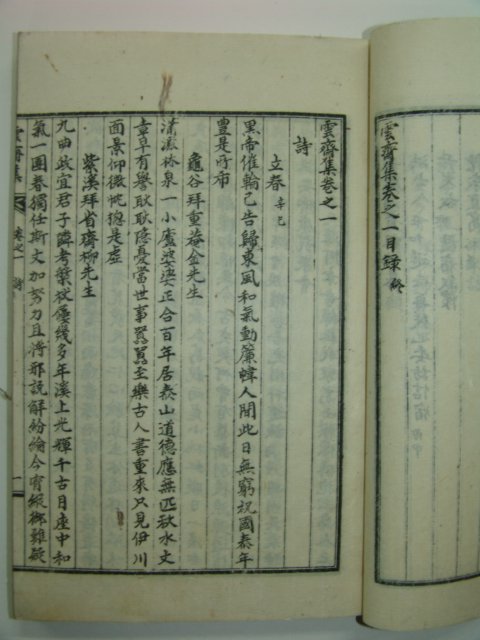 雲齋集卷之一目錄 終
雲齋集卷之一
詩
立春 辛巳
黑帝催輪已告歸東風和氣動簾幃人間此日無窮祝國泰年
豊是所希
龜谷拜重菴金先生
瀟灑林泉一小廬婆娑正合百年居泰山道德應無匹秋水文
章早有譽耿耿隱憂當世事囂囂至樂古人書重來只見伊川
面景仰微忱摠是虛
紫溪拜省齋柳先生
九曲政宜君子隣考槃幾多年溪上光輝千古月座中和
氣一團春獨任斯文加努力且將邪說解紛綸今宵緩難疑
雲齋集 卷之一 詩 一